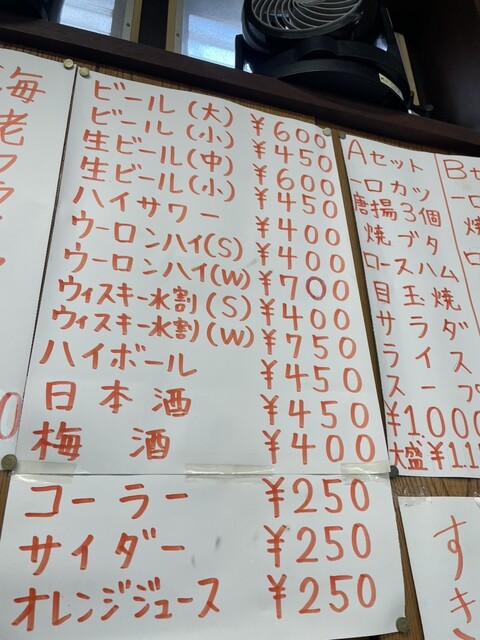 海老フ
ビール(大) ¥600
ビール(小) ¥450
生ビール(中) ¥600
生ビール(小) ¥450
ハイサワー ¥400
ウーロンハイ(S) ¥400
ウーロンハイ(W) ¥700
ウィスキー水割(S) ¥400
ウィスキー水割(W) ¥750
ハイボール ¥450
日本酒 ¥450
梅酒 ¥400
コーラー ¥250
サイダー ¥250
オレンジジュース ¥250
Aセット
一口カツ
唐揚3個
焼ブタ
ロースハム
目玉焼
サラダ
ライス
スープ
¥1.000
大盛¥1.1
Bセ
一口
焼
ロ
すき